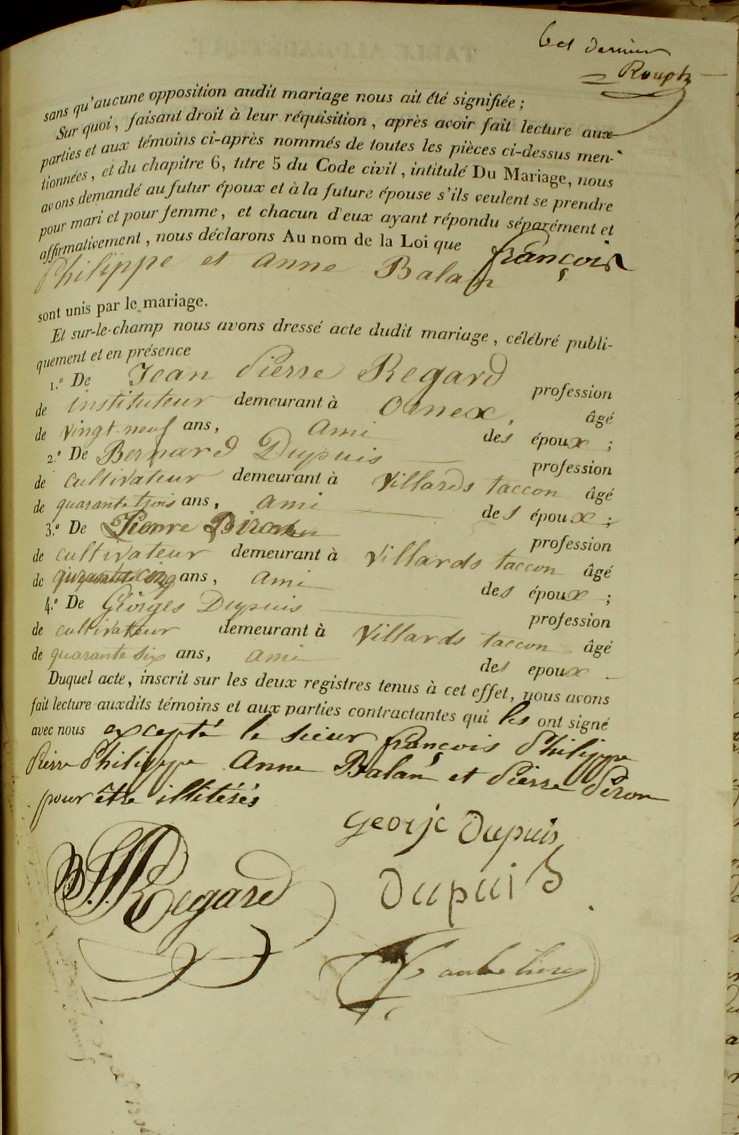 6 et dernier
Rouph
sans qu'aucune opposition audit mariage nous ait été signifiée ;
Sur quoi, faisant droit à leur réquisition, après avoir fait lecture aux
parties et aux témoins ci-après nommés de toutes les pièces ci-dessus men-
tionnées, et du chapitre 6, titre 5 du Code civil, intitulé Du Mariage, nous
avons demandé au futur époux et à la future épouse s'ils veulent se prendre
pour mari et pour femme, et chacun d'eux ayant répondu séparément et
affirmativement, nous déclarons Au nom de la Loi que françois
Philippe et anne Balan
sont unis par le mariage.
Et sur-le-champ nous avons dressé acte dudit mariage, célébré publi-
quement et en présence
1.º De Jean Pierre Regard profession
de instituteur demeurant à Ornex, âgé
de vingt neuf ans, ami des époux ;
2.º De Bernard Dupuis profession
de cultivateur demeurant à Villards taccon âgé
de quarante trois ans, ami des époux ;
3.º De Pierre profession
de cultivateur demeurant à Villards taccon âgé
de quarante cinq ans, ami des époux ;
4.º De Georges Dupuis profession
de cultivateur demeurant à Villards taccon âgé
de quarante six ans, ami des epoux
Duquel acte, inscrit sur les deux registres tenus à cet effet, nous avons
fait lecture auxdits témoins et aux parties contractantes qui les ont signé
avec nous excepté le sieur françois Philippe
Pierre Philippe Anne Balan et Pierre Péron
pour être illitérés
George Dupuis
Regard
Dupuis